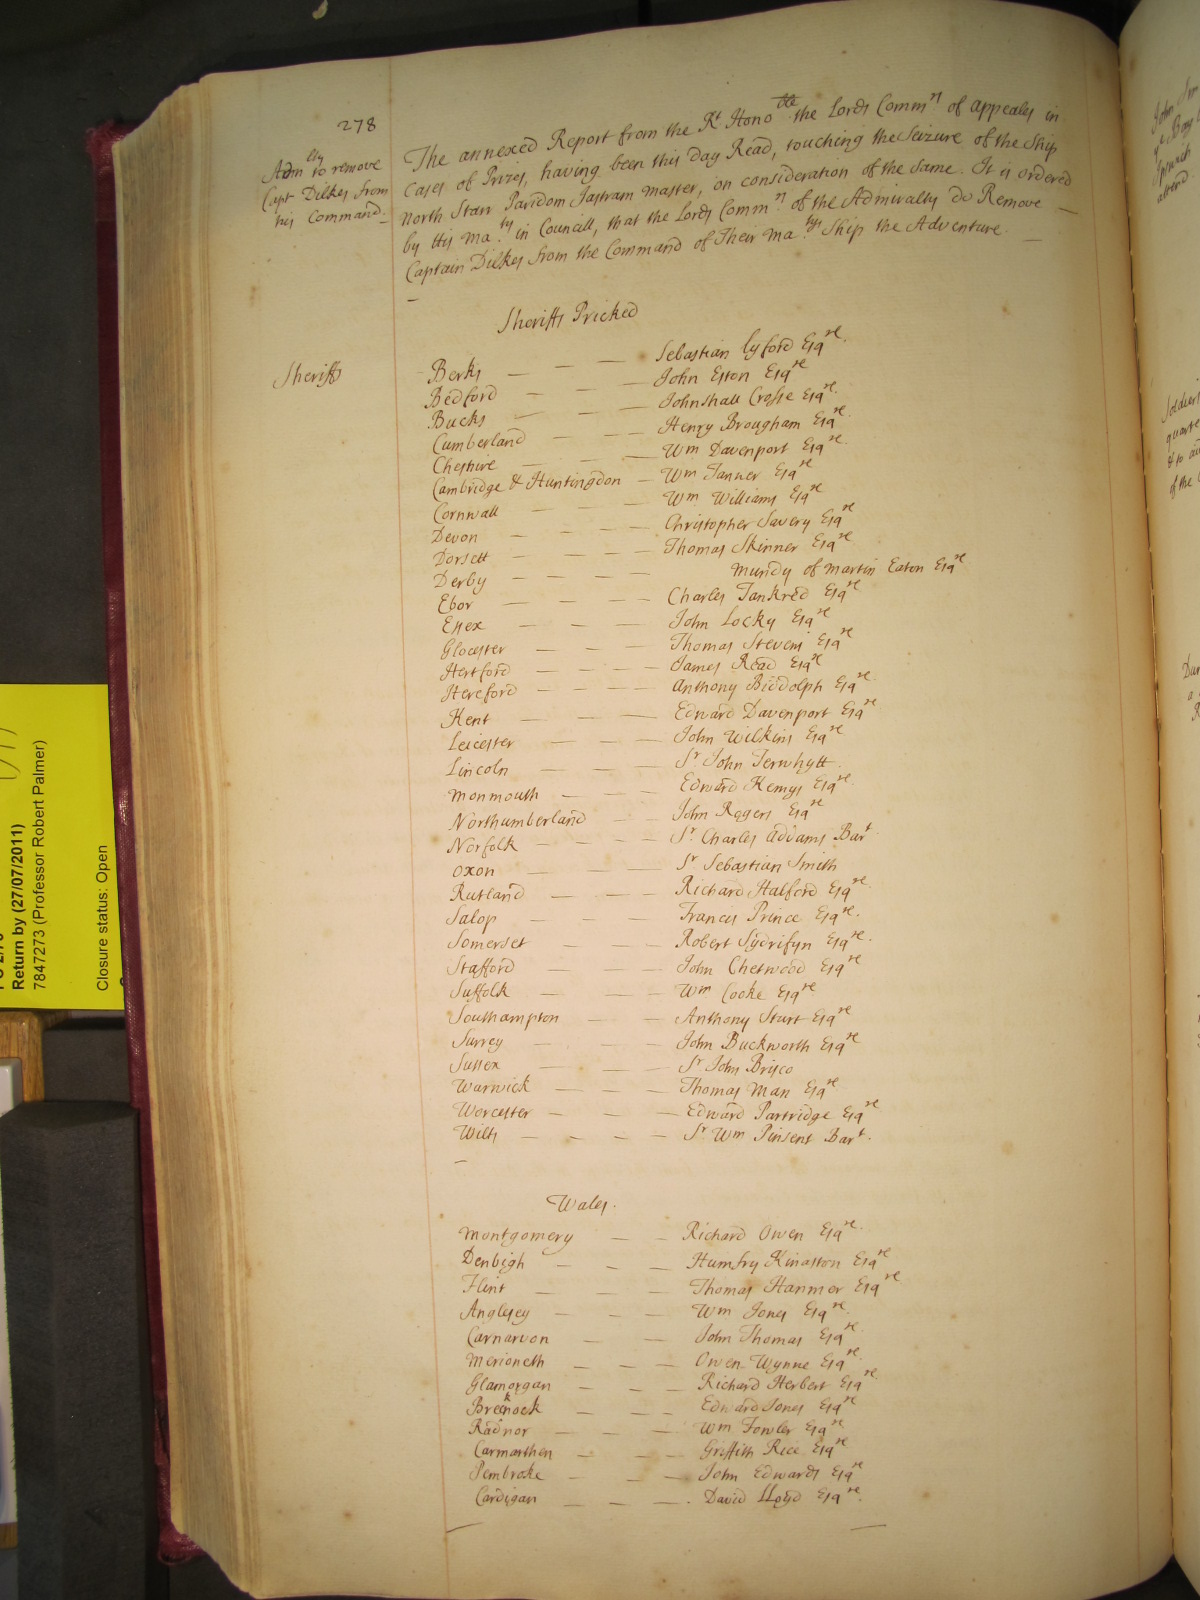 278
Adm^lty to remove
Capt Dilkes from
his Command.
The annexed Report from the R^t Hono^ble the Lords Comm^rs of appeales in
Cases of Prizes, having been this Day Read, touching the Seizure of the Ship
North Starr Paridom Jastram master, on consideration of the same. It is ordered
by His Ma^ty in Councill, that the Lords Comm^rs of the Admiralty do Remove —
Captain Dilkes from the Command of Their Ma^tys Ship the Adventure. —
Sheriffs Pricked
Sheriffs
Berks — — — Sebastian Lyford Esq^re.
Bedford — — — John Eston Esq^re
Bucks — — — Johnshall Crosse Esq^re.
Cumberland — — Henry Brougham Esq^re.
Cheshire — — — Wm Davenport Esq^re.
Cambridge & Huntingdon — Wm Tanner Esq^re
Cornwall — — — Wm Williams Esq^re
Devon — — — — Christopher Savery Esq^re
Dorsett — — — — Thomas Skinner Esq^re
Derby — — — — Mundy of Martin Eaton Esq^re
Ebor — — — — Charles Tankred Esq^re
Essex — — — — John Locky Esq^re
Glocester — — — Thomas Stevens Esq^re
Hertford — — — James Read Esq^re
Hereford — — — — Anthony Biddolph Esq^re.
Kent — — — Edward Davenport Esq^re
Leicester — — — John Wilkins Esq^re
Lincoln — — — S^r John Terwhytt.
Monmouth — — — Edward Kemys Esq^re.
Northumberland — — John Rogers Esq^re
Norfolk — — — — S^r Charles Addams Bar^t
Oxon — — — S^r Sebastian Smith
Rutland — — — Richard Halford Esq^re.
Salop — — — Francis Prince Esq^re.
Somerset — — Robert Sydrifyn Esq^re.
Stafford — — — John Chetwood Esq^re
Suffolk — — — Wm Cooke Esq^re
Southampton — — Anthony Sturt Esq^re
Surrey — — — John Buckworth Esq^re
Sussex — — — S^r John Brisco
Warwick — — — Thomas Man Esq^re
Worcester — — — Edward Partridge Esq^re
Wilts — — — — S^r Wm Pinsent Bar^t.
Wales.
Montgomery — — Richard Owen Esq^re.
Denbigh — — — Humfry Kinaston Esq^re
Flint — — — Thomas Hanmer Esq^re
Anglesey — — — Wm Jones Esq^re.
Carnarvon — — John Thomas Esq^re
Merioneth — — — Owen Wynne Esq^re.
Glamorgan — — — Richard Herbert Esq^re
Brecknock — — — Edward Jones Esq^re
Radnor — — — Wm Fowler Esq^re
Carmarthen — — Griffith Rice Esq^re
Pembroke — — — John Edwards Esq^re
Cardigan — — — David Lloyd Esq^re.
Return by (27/07/2011)
7847273 (Professor Robert Palmer)
Closure status: Open